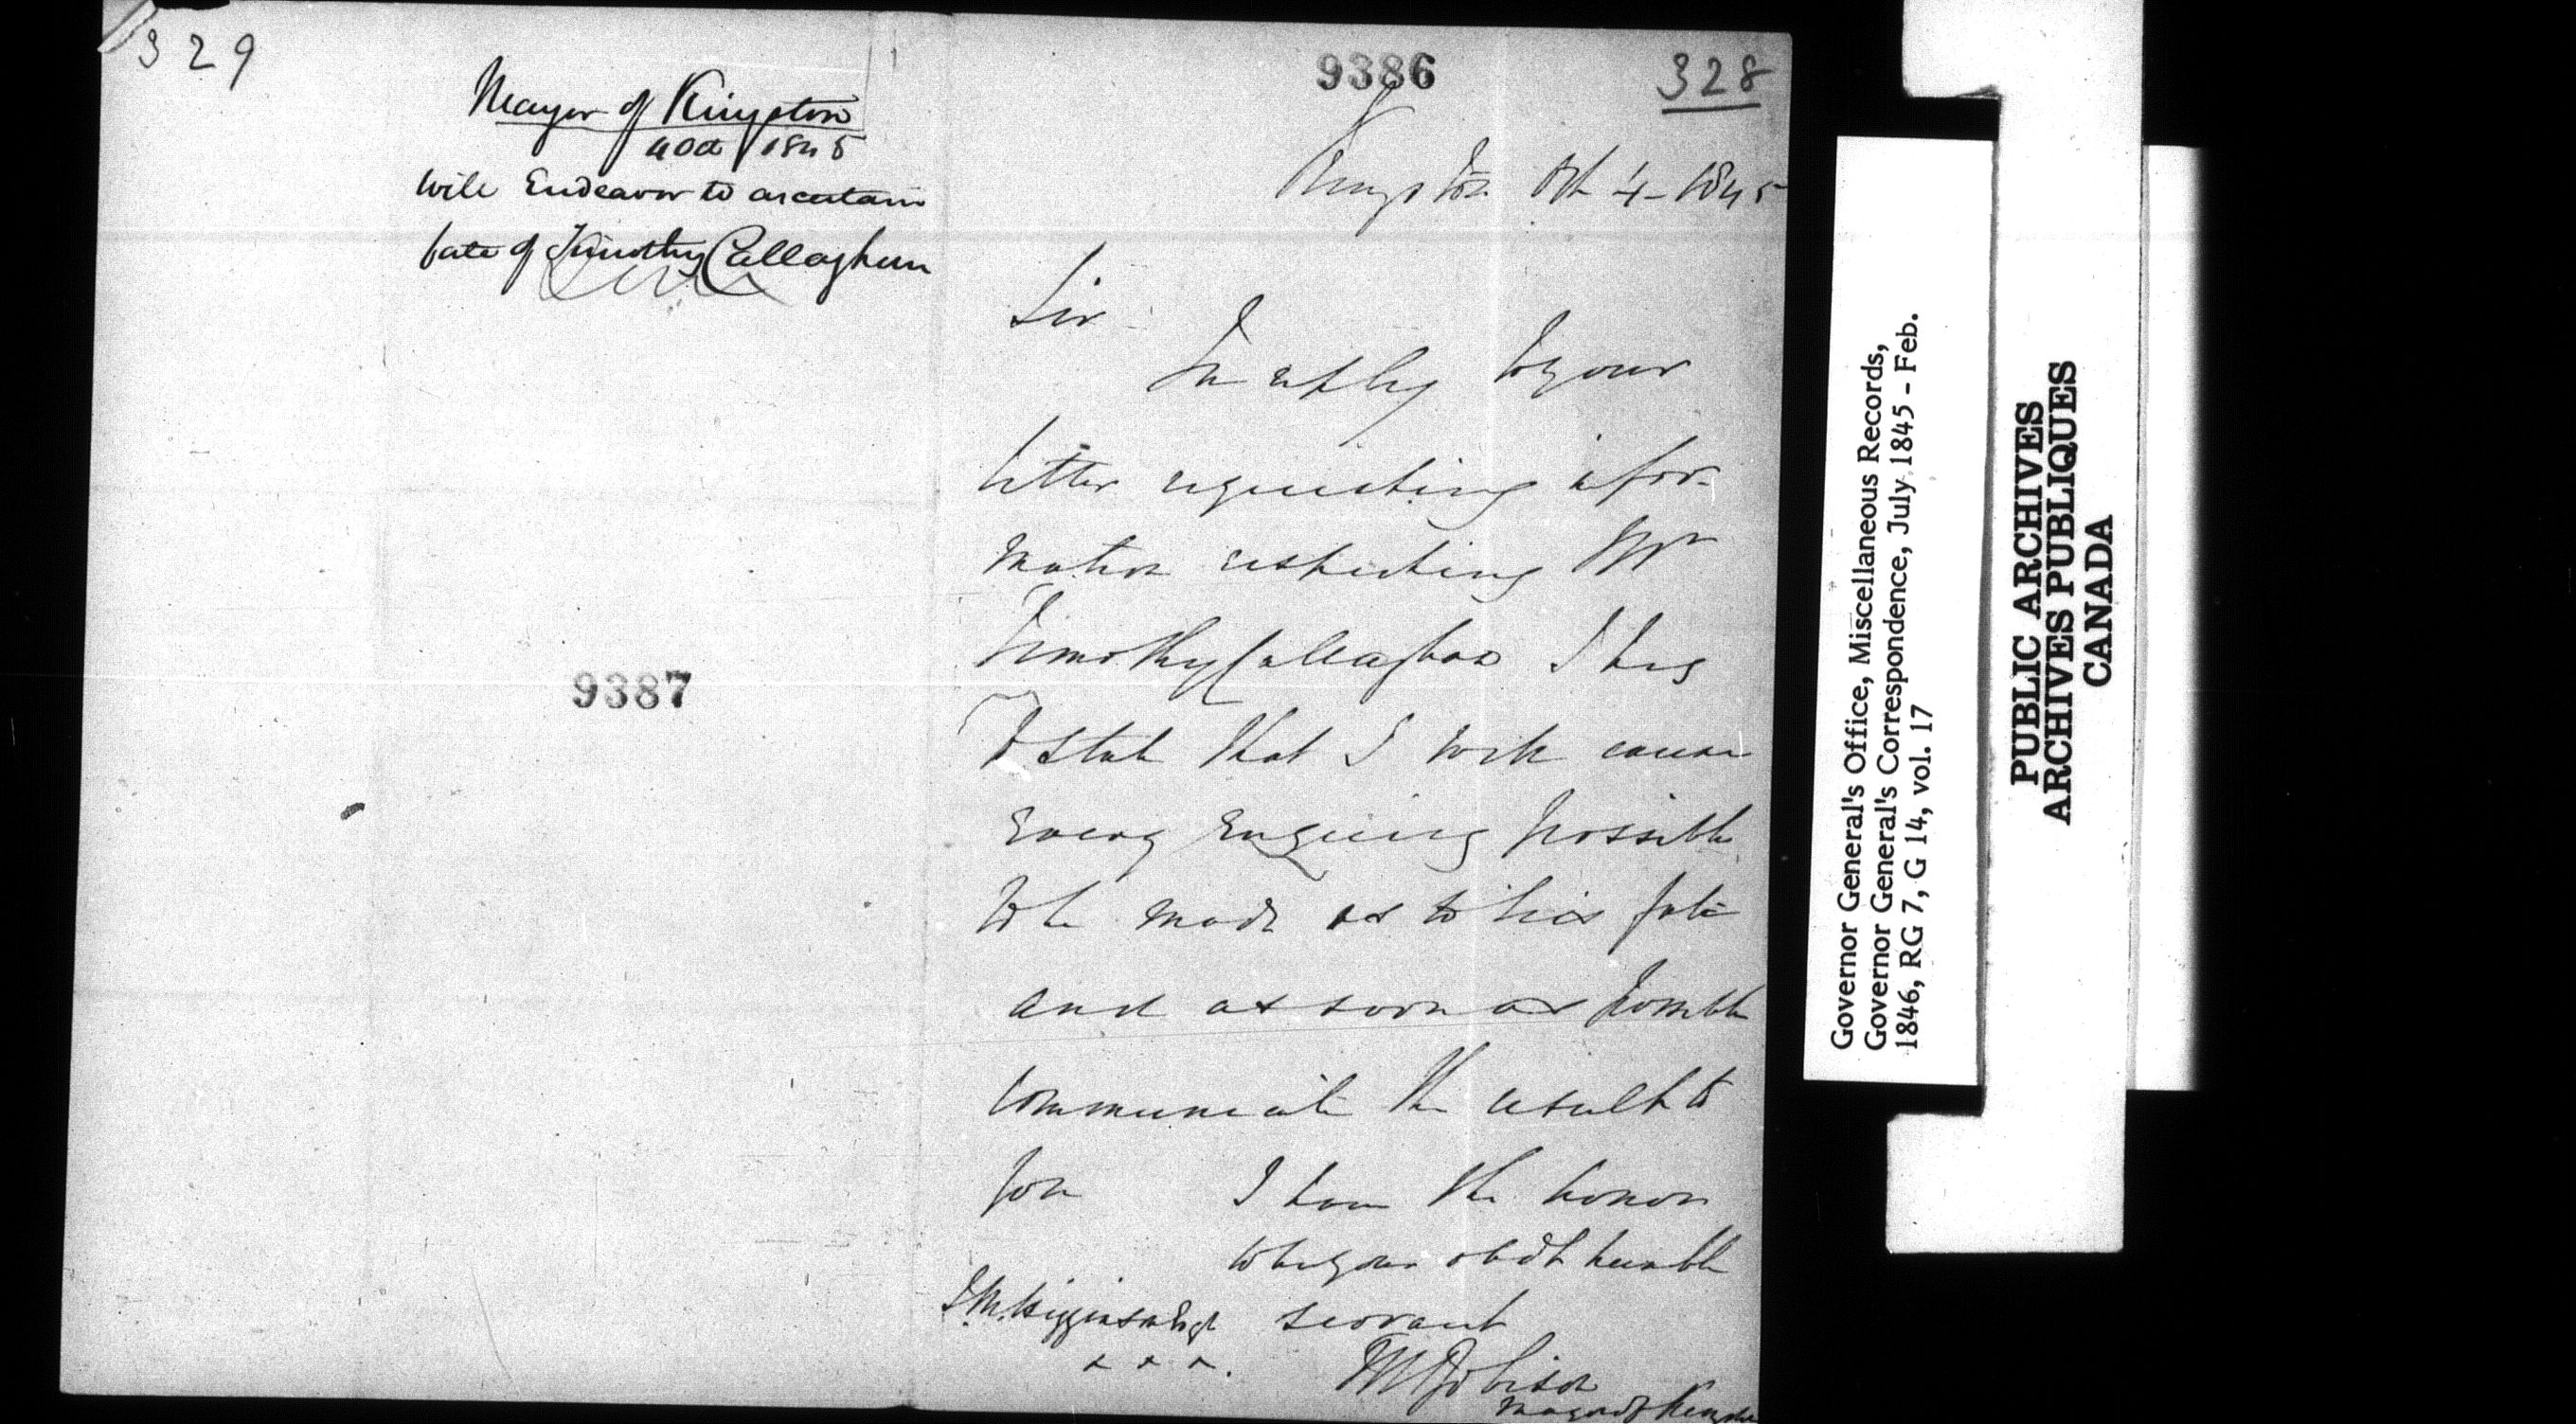 329
Mayor of Kingston
4 Oct 1845
Will Endeavor to ascertain
fate of Timothy Callaghan
9387
9386
328
Kingston Oct 4 - 1845
Sir
In reply to your
letter requesting infor-
mation respecting Mr
Timothy Callaghan I beg
to state that I will cause
Every Enquiry possible
to be made as to his fate
and as soon as possible
communicate the result to
you I have the honor
to be your obdt humble
J.M. Higginson Esqr servant
Mayor of Kingston
Governor General's Office, Miscellaneous Records,
Governor General's Correspondence, July 1845 - Feb.
1846, RG 7, G 14, vol. 17
PUBLIC ARCHIVES
ARCHIVES PUBLIQUES
CANADA